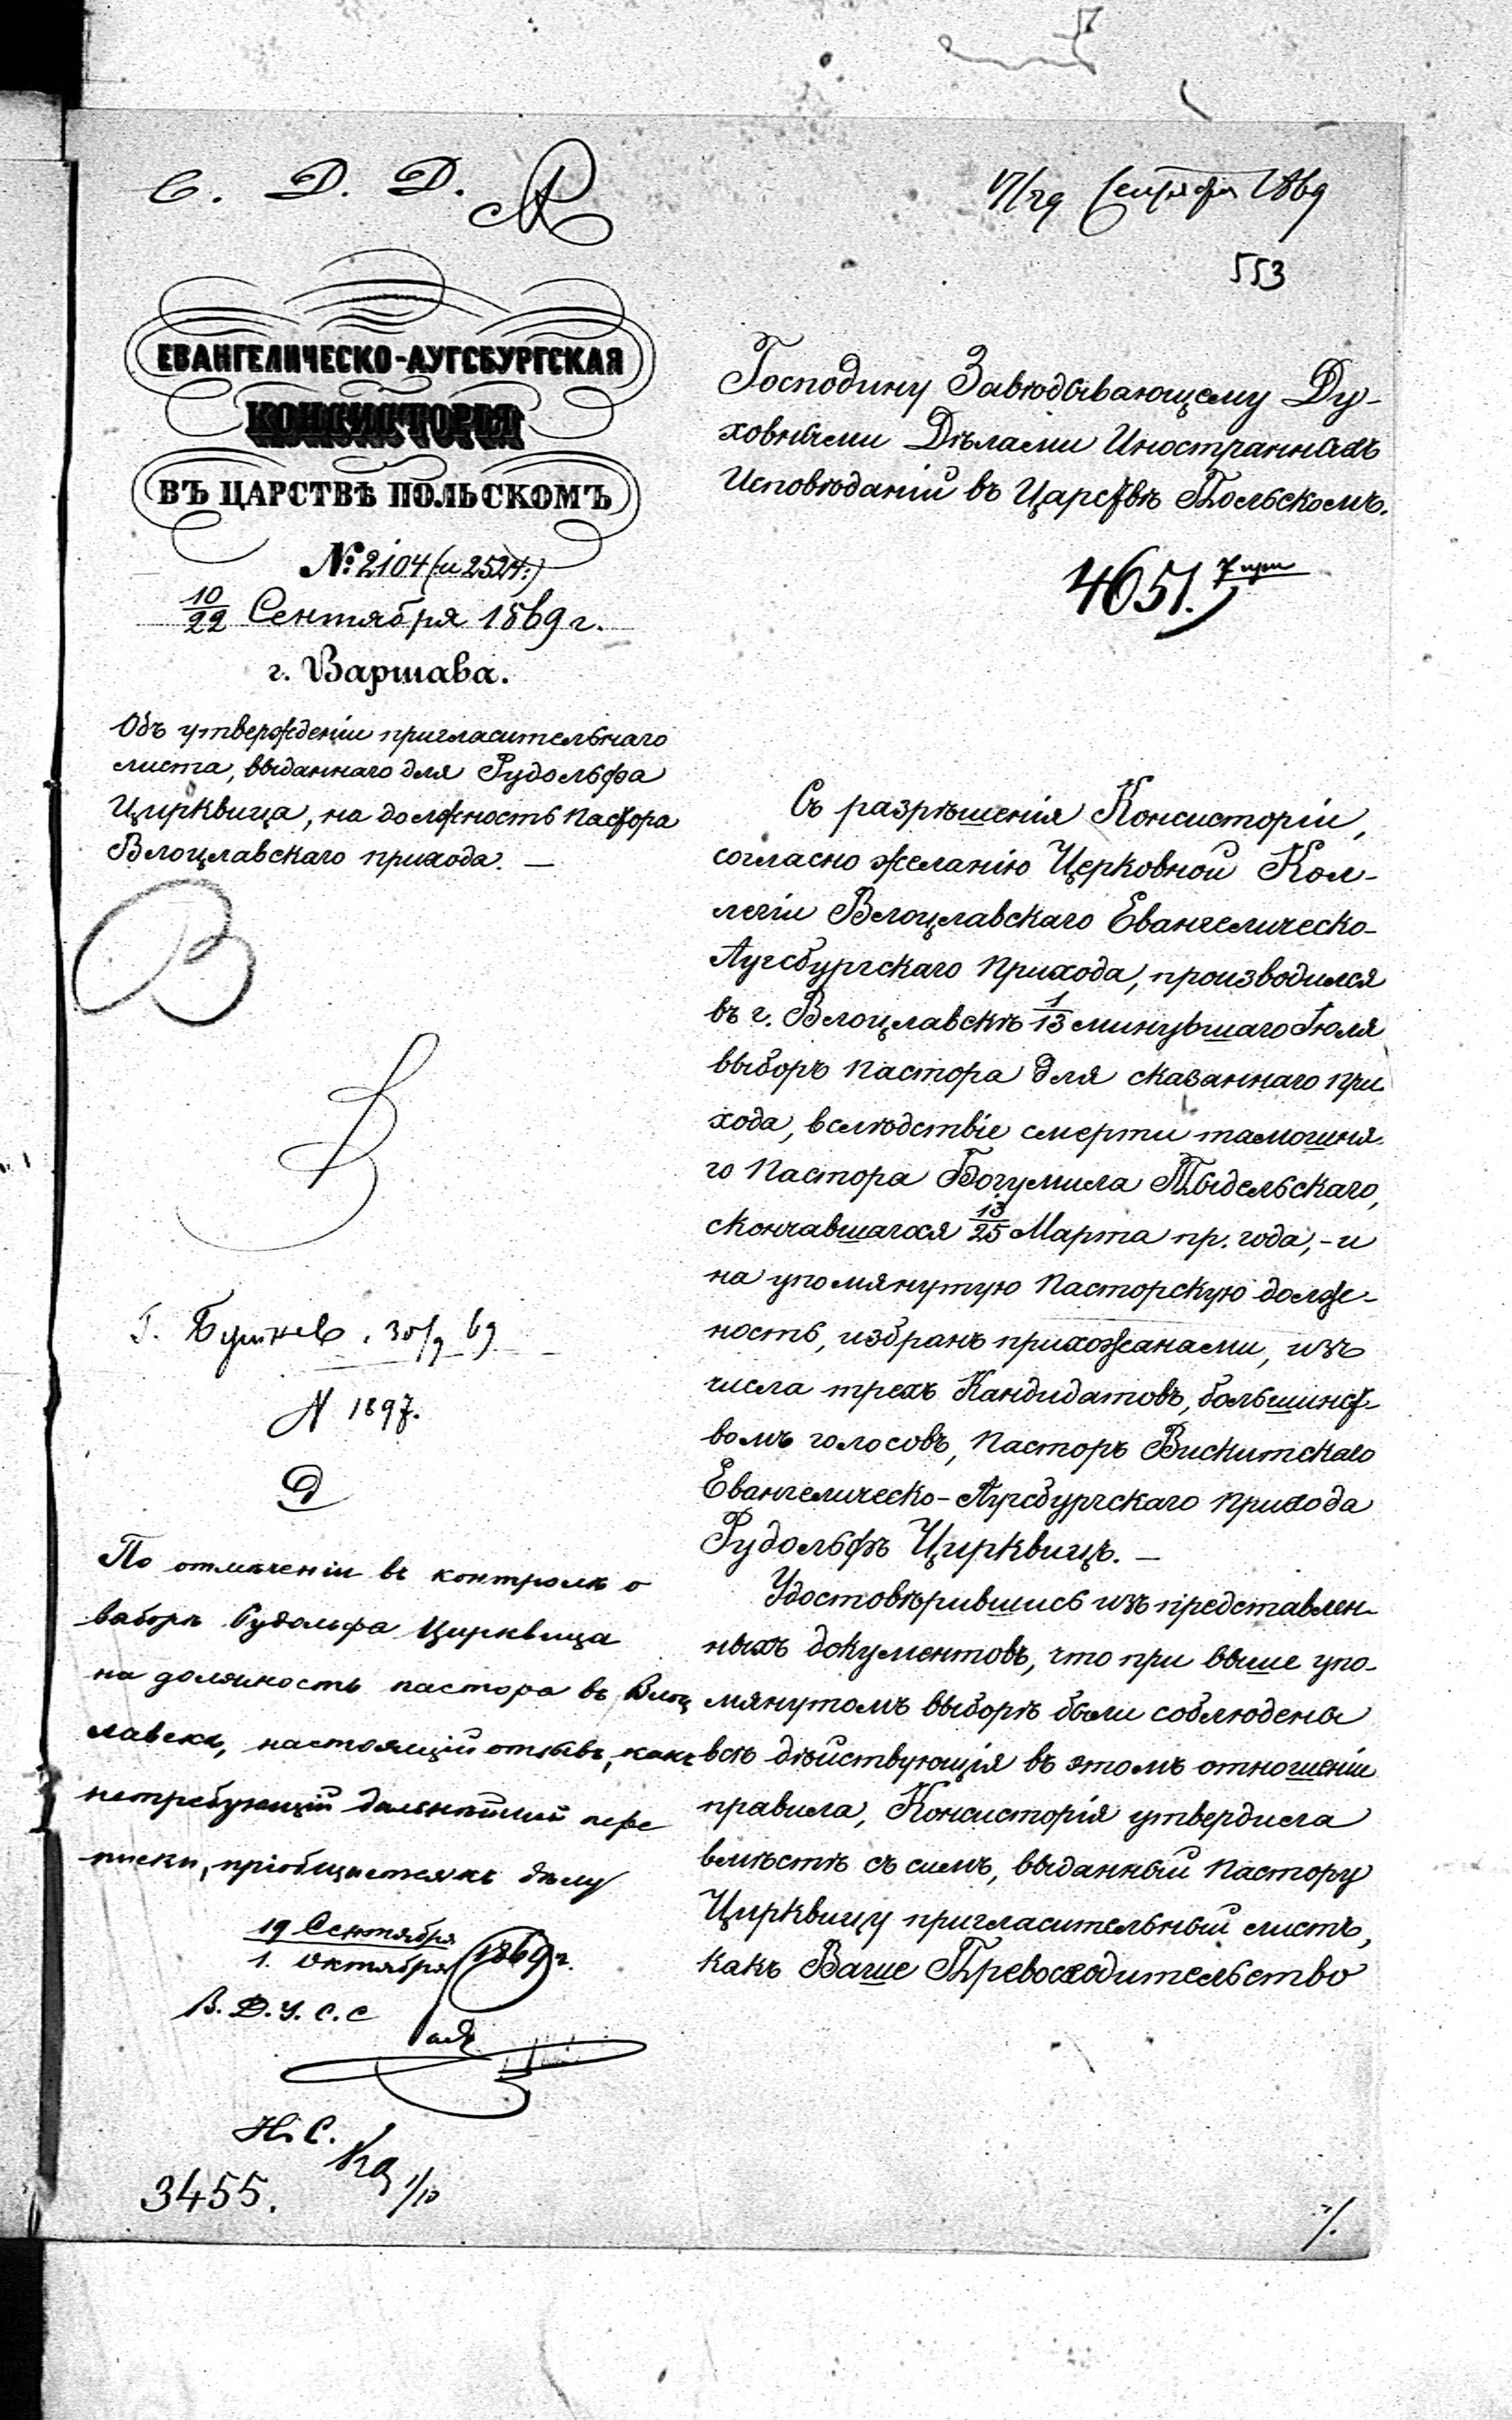 С. Д. Д.
17/29 Сентября 1869
553
ЕВАНГЕЛИЧЕСКО-АУГСБУРГСКАЯ
КОНСИСТОРІЯ
ВЪ ЦАРСТВѢ ПОЛЬСКОМЪ
№ 2104 (и 2524:)
10/22 Сентября 1869 г.
г. Варшава.
Объ утвержденіи пригласительнаго
листа, выданнаго для Рудольфа
Цирквица, на должность Пастора
Влоцлавскаго прихода. —
Господину Завѣдывающему Ду-
ховными Дѣлами Иностранныхъ
Исповѣданій въ Царствѣ Польскомъ.
4651.
Съ разрѣшенія Консисторіи,
согласно желанію Церковной Кол-
легіи Влоцлавскаго Евангелическо-
Аугсбургскаго Прихода, производился
въ г. Влоцлавскѣ 1/13 минувшаго Іюля
выборъ Пастора для сказаннаго При-
хода, вслѣдствіе смерти тамошня-
го Пастора Богумила Тыдельскаго,
скончавшагося 13/25 Марта пр. года, - и
на упомянутую Пасторскую долж-
ность, избранъ прихожанами, изъ
числа трехъ Кандидатовъ, большинст-
вомъ голосовъ, Пасторъ Вискитскаго
Евангелическо-Аугсбургскаго Прихода
Рудольфъ Цирквицъ. —
Удостовѣрившись изъ представлен-
ныхъ документовъ, что при выше упо-
мянутомъ выборѣ были соблюдены
всѣ дѣйствующія въ этомъ отношеніи
правила, Консисторія утвердила
вмѣстѣ съ симъ, выданный Пастору
Цирквицу пригласительный листъ,
какъ Ваше Превосходительство
Г. 30/9 69
N 1897.
По отмѣченіи въ контролѣ о
выборѣ Рудольфа Цирквица
на должность пастора въ Влоц
лавскѣ, настоящій отзывъ, какъ
нетребующій дальнѣйшей пере
писки, пріобщается къ дѣлу
19 Сентября
1. Октября 1869 г.
В. Д. У. С. С
Н. С.
1/10
3455.